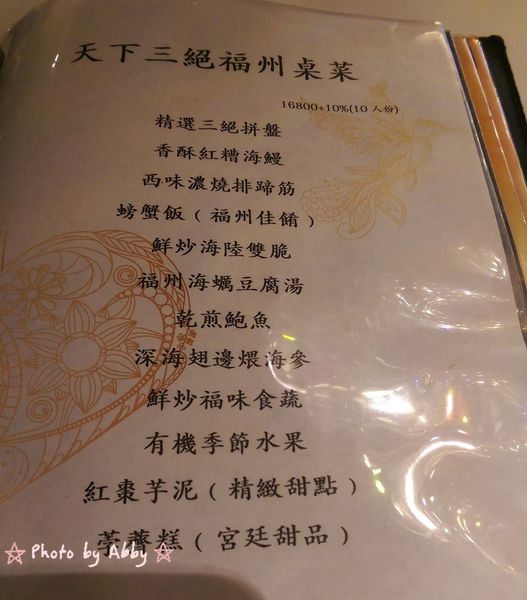 天下三絕福州桌菜
16800+10%(10人份)
精選三絕拼盤
香酥紅糟海鰻
西味濃燒排蹄筋
螃蟹飯(福州佳餚)
鮮炒海陸雙脆
福州海蠣豆腐湯
乾煎鮑魚
深海翅邊煨海參
鮮炒福味食蔬
有機季節水果
紅棗芋泥(精緻甜點)
荸薺糕(宮廷甜品)
☆ Photo by Abby ☆